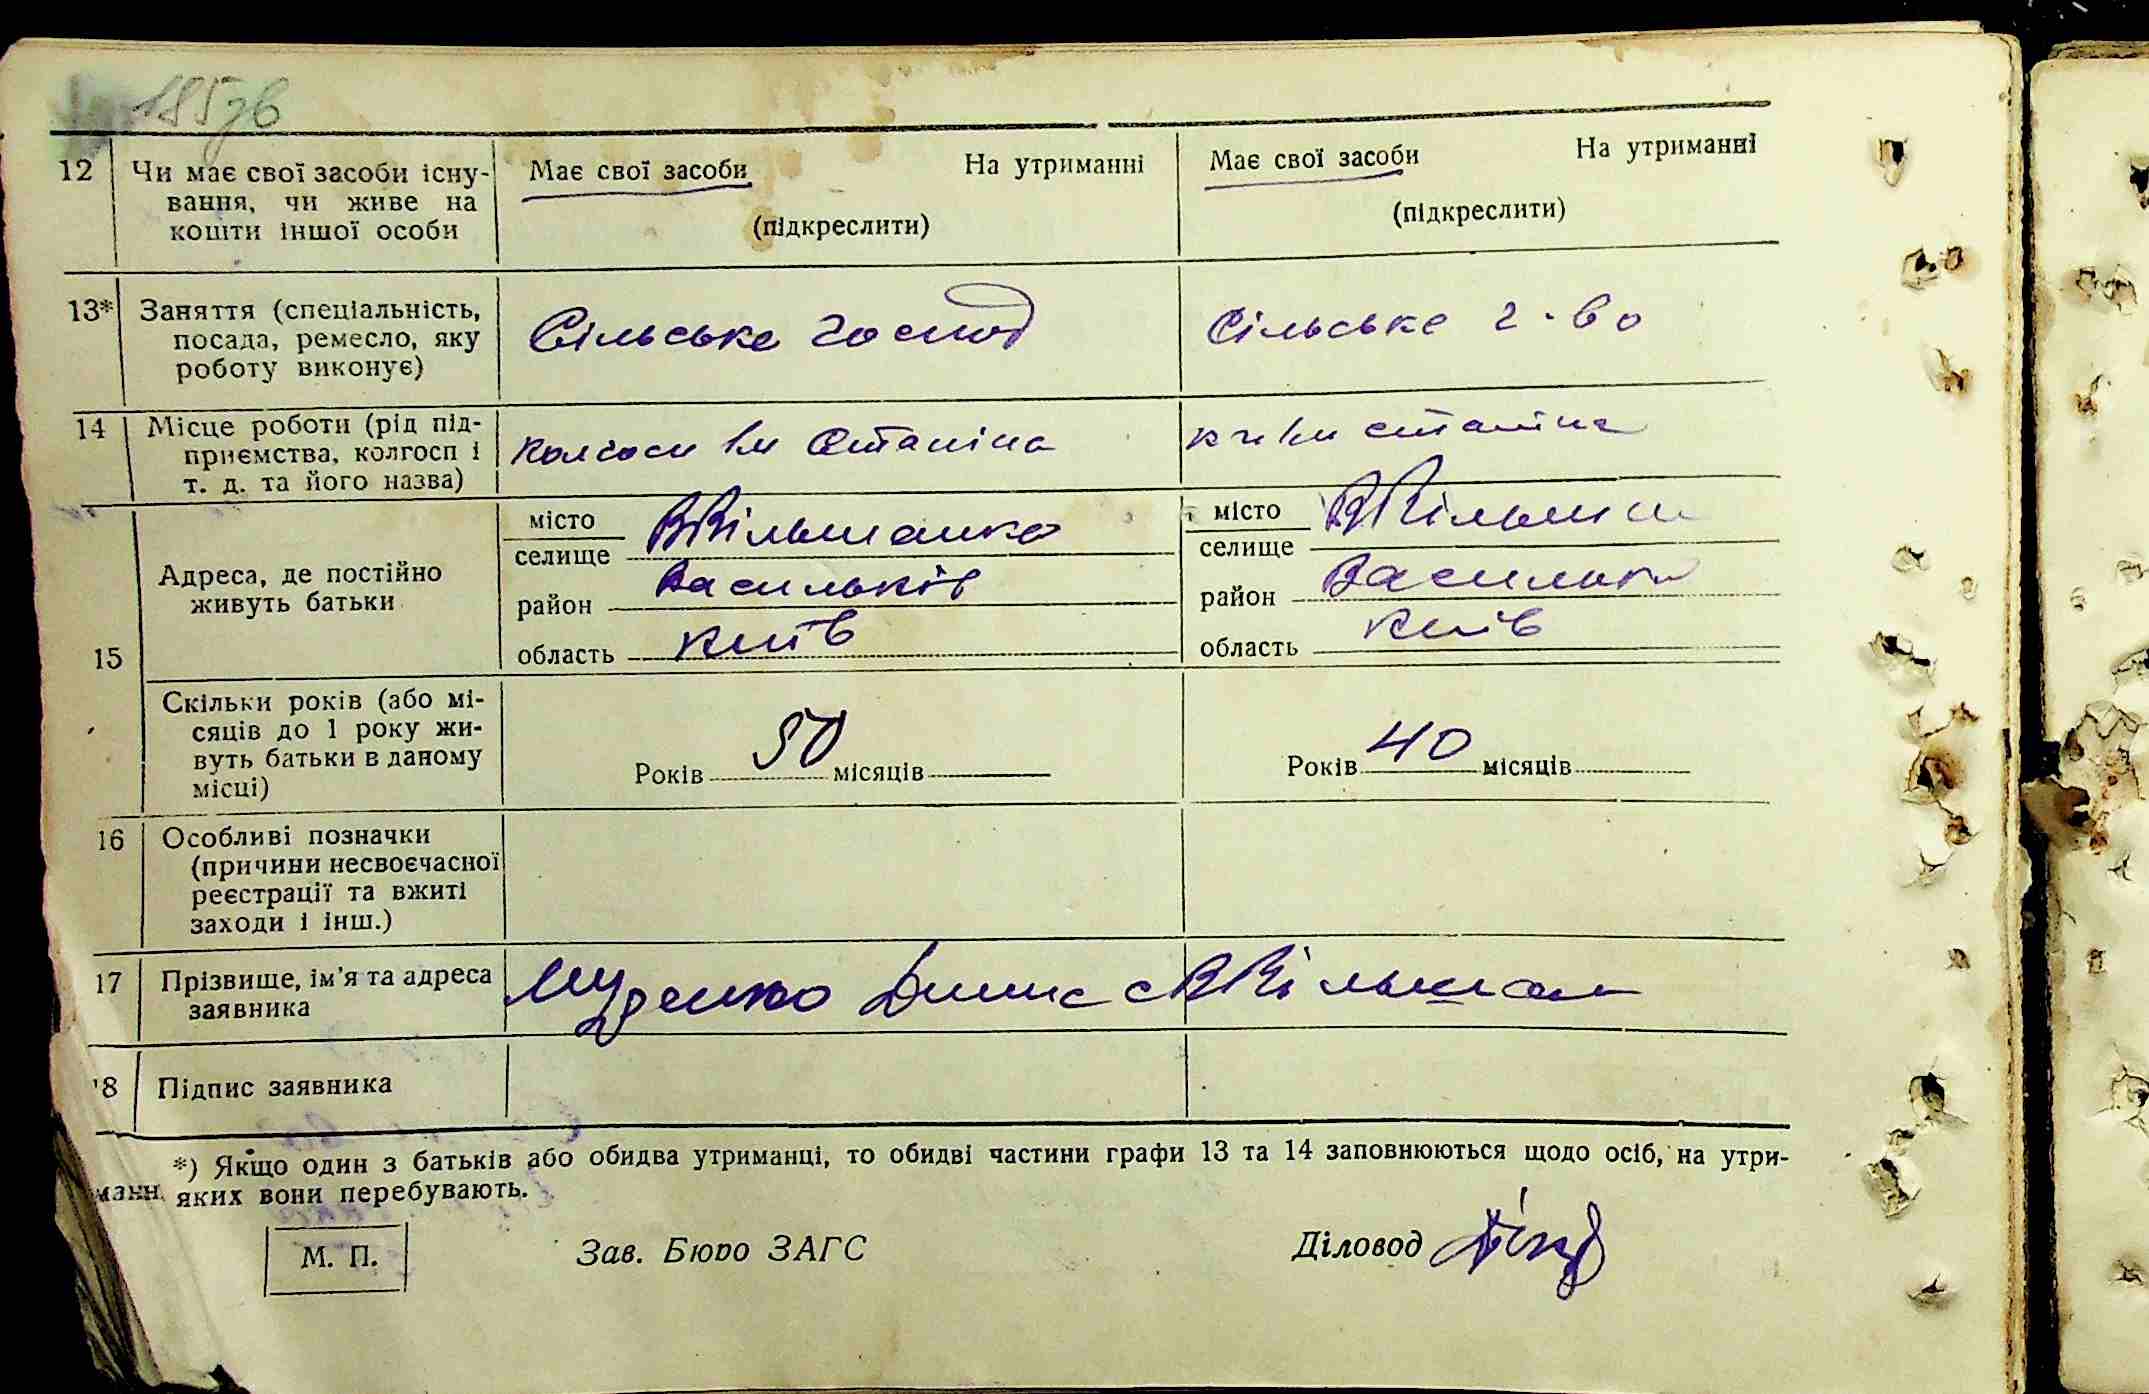 185зв
12 Чи має свої засоби існу-
вання, чи живе на
кошти іншої особи
Має свої засоби На утриманні
(підкреслити)
Має свої засоби На утриманні
(підкреслити)
13* Заняття (спеціальність,
посада, ремесло, яку
роботу виконує)
Сільське господ
Сільське г-во
14 Місце роботи (рід під-
приємства, колгосп і
т. д. та його назва)
колгосп ім Сталіна
к-п ім Сталіна
15
Адреса, де постійно
живуть батьки
місто
селище ВВільшанка
район Васильків
область Київ
місто
селище ВВільшан
район Васильків
область Київ
Скільки років (або мі-
сяців до 1 року жи-
вуть батьки в даному
місці)
Років 50 місяців
Років 40 місяців
16 Особливі позначки
(причини несвоєчасної
реєстрації та вжиті
заходи і інш.)
17 Прізвище, ім'я та адреса
заявника
Денис с ВВільшан
18 Підпис заявника
*) Якщо один з батьків або обидва утриманці, то обидві частини графи 13 та 14 заповнюються щодо осіб, на утри-
манн. яких вони перебувають.
М. П.
Зав. Бюро ЗАГС
Діловод